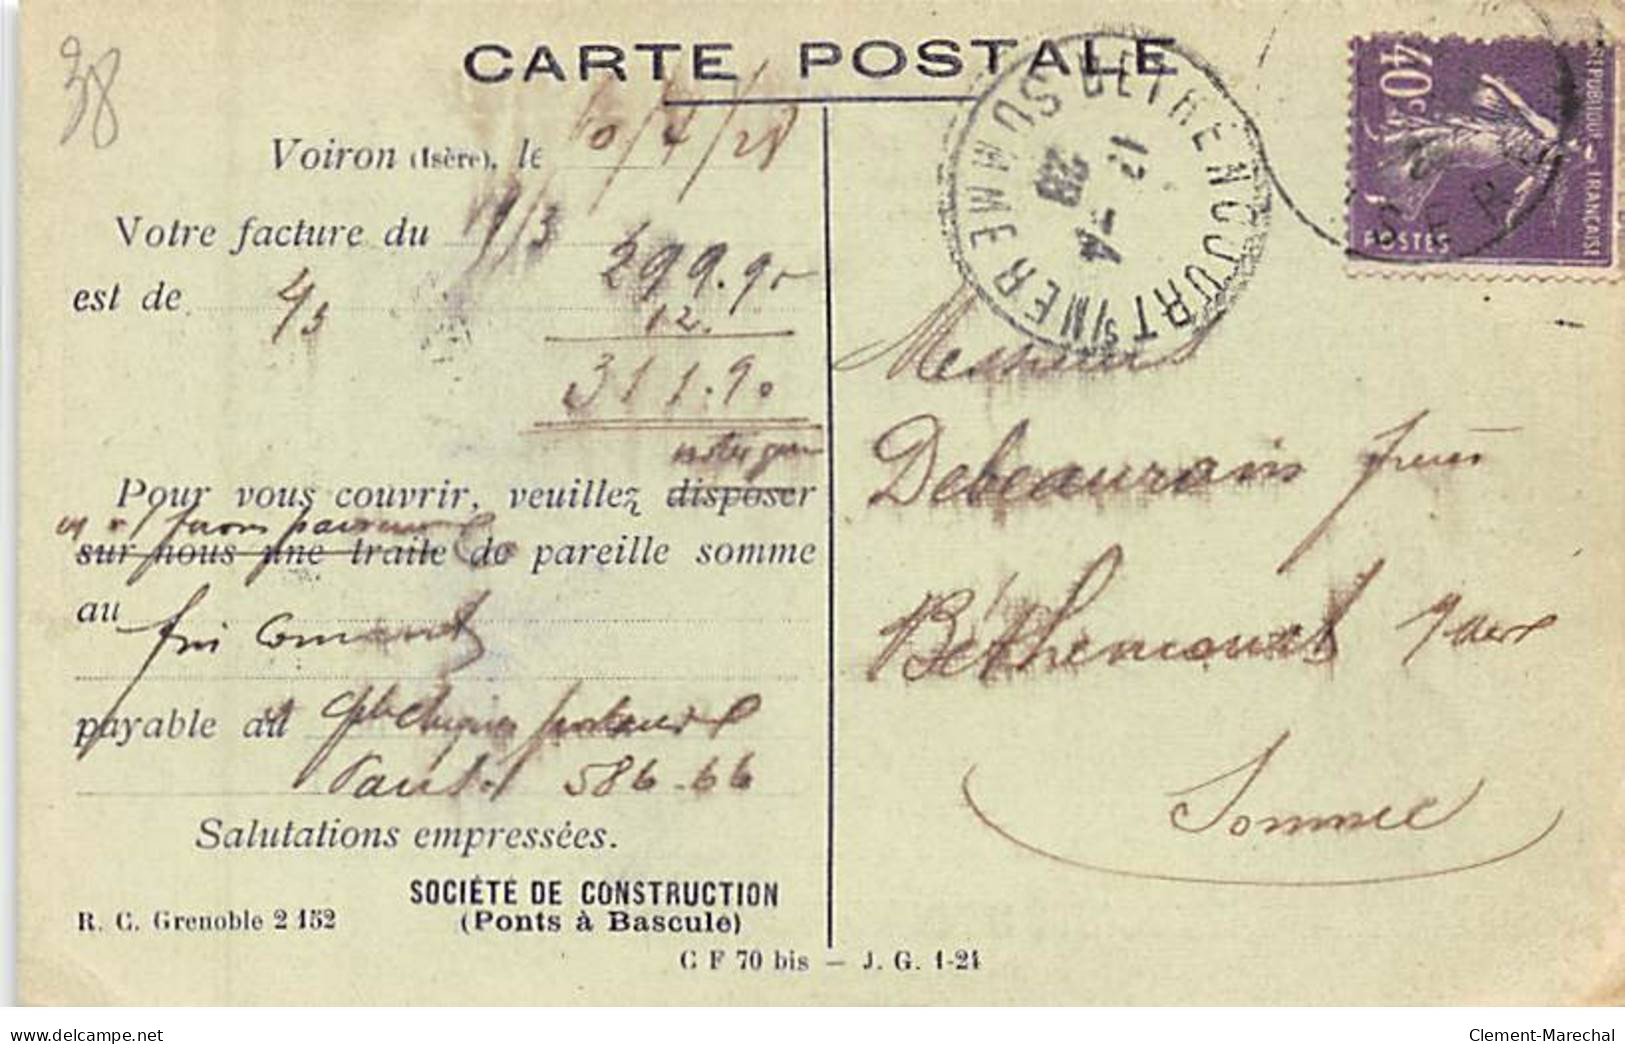 38
CARTE POSTALE
Voiron (Isère), le 10/4/28
Votre facture du 1/3
299.90
est de 4/3
12.
311.90
notez que
Pour vous couvrir, veuillez disposer
sur nous une traite de pareille somme
au fin courant
payable au chèques postaux
Paris 586-66
Salutations empressées.
SOCIÉTÉ DE CONSTRUCTION
(Ponts à Bascule)
R. C. Grenoble 2 152
C F 70 bis — J. G. 1-24
BETHENCOURT S/MER SOMME
12 -4 28
40c
REPUBLIQUE FRANÇAISE
POSTES
ISERE
Messieurs
Debeaurain frères
Béthencourt s/mer
Somme
delcampe.net
Clement-Marechal